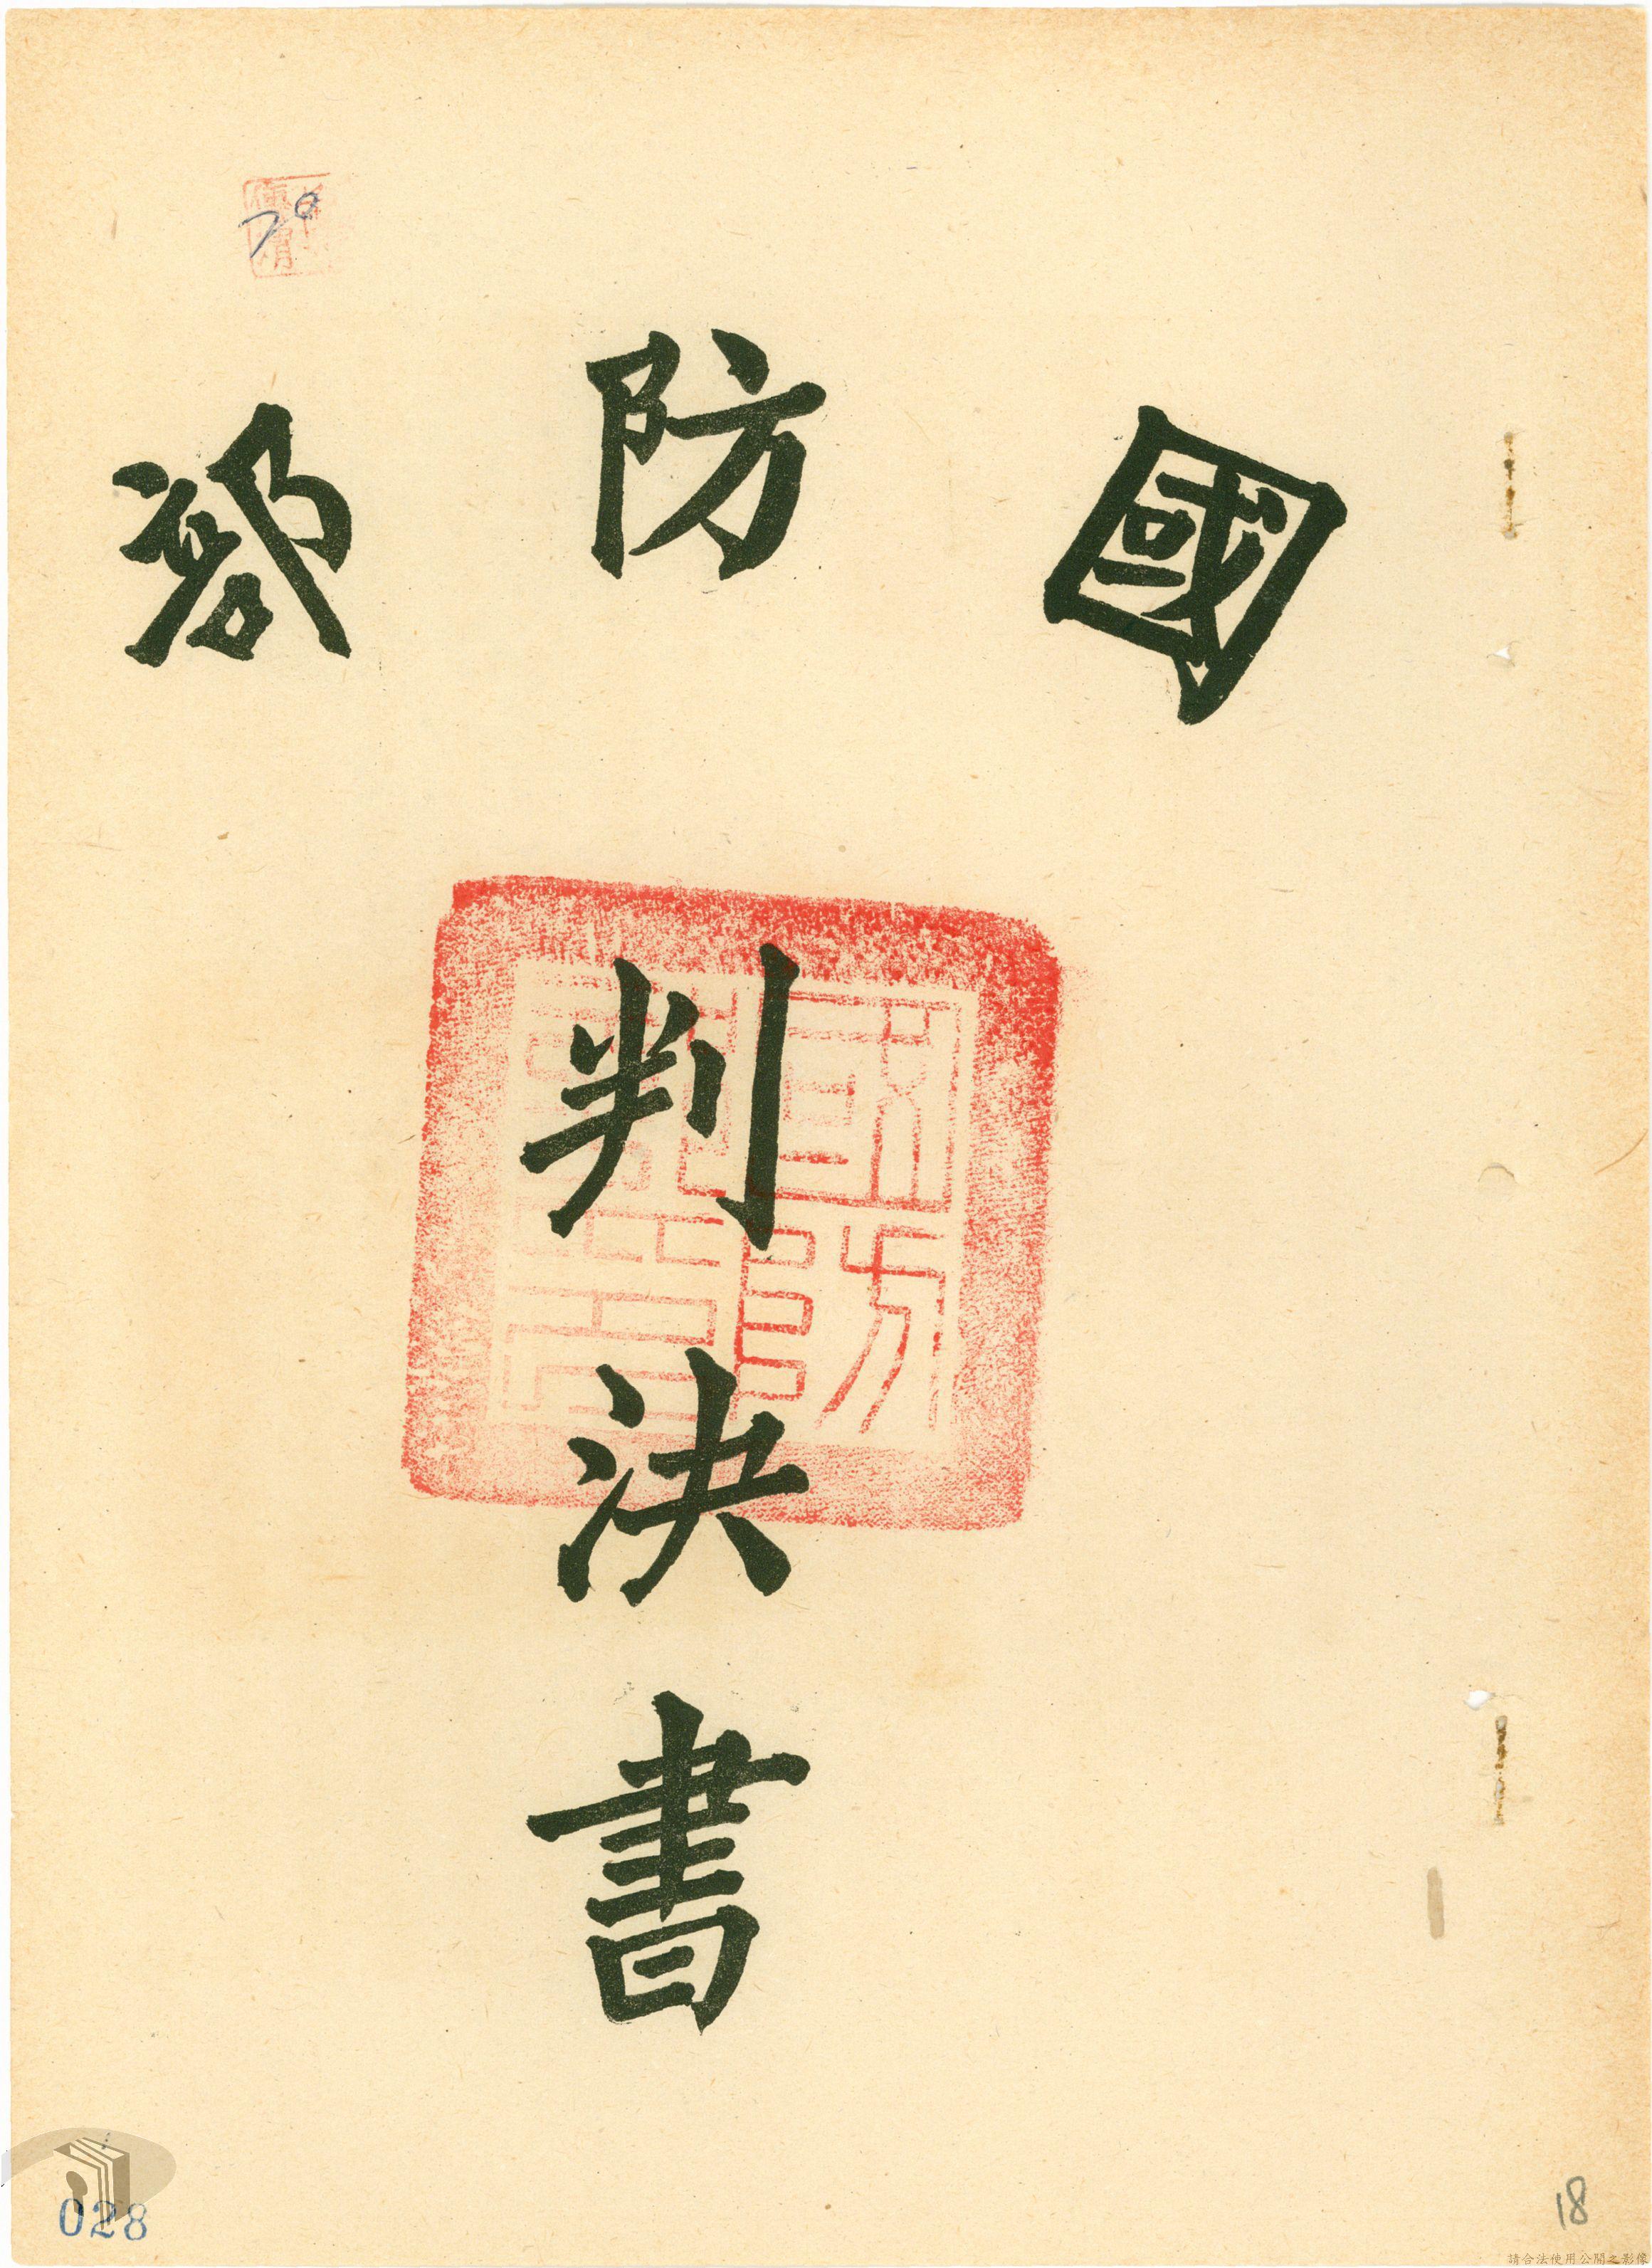 國防部
判決書
028
18
請合法使用公開之影像